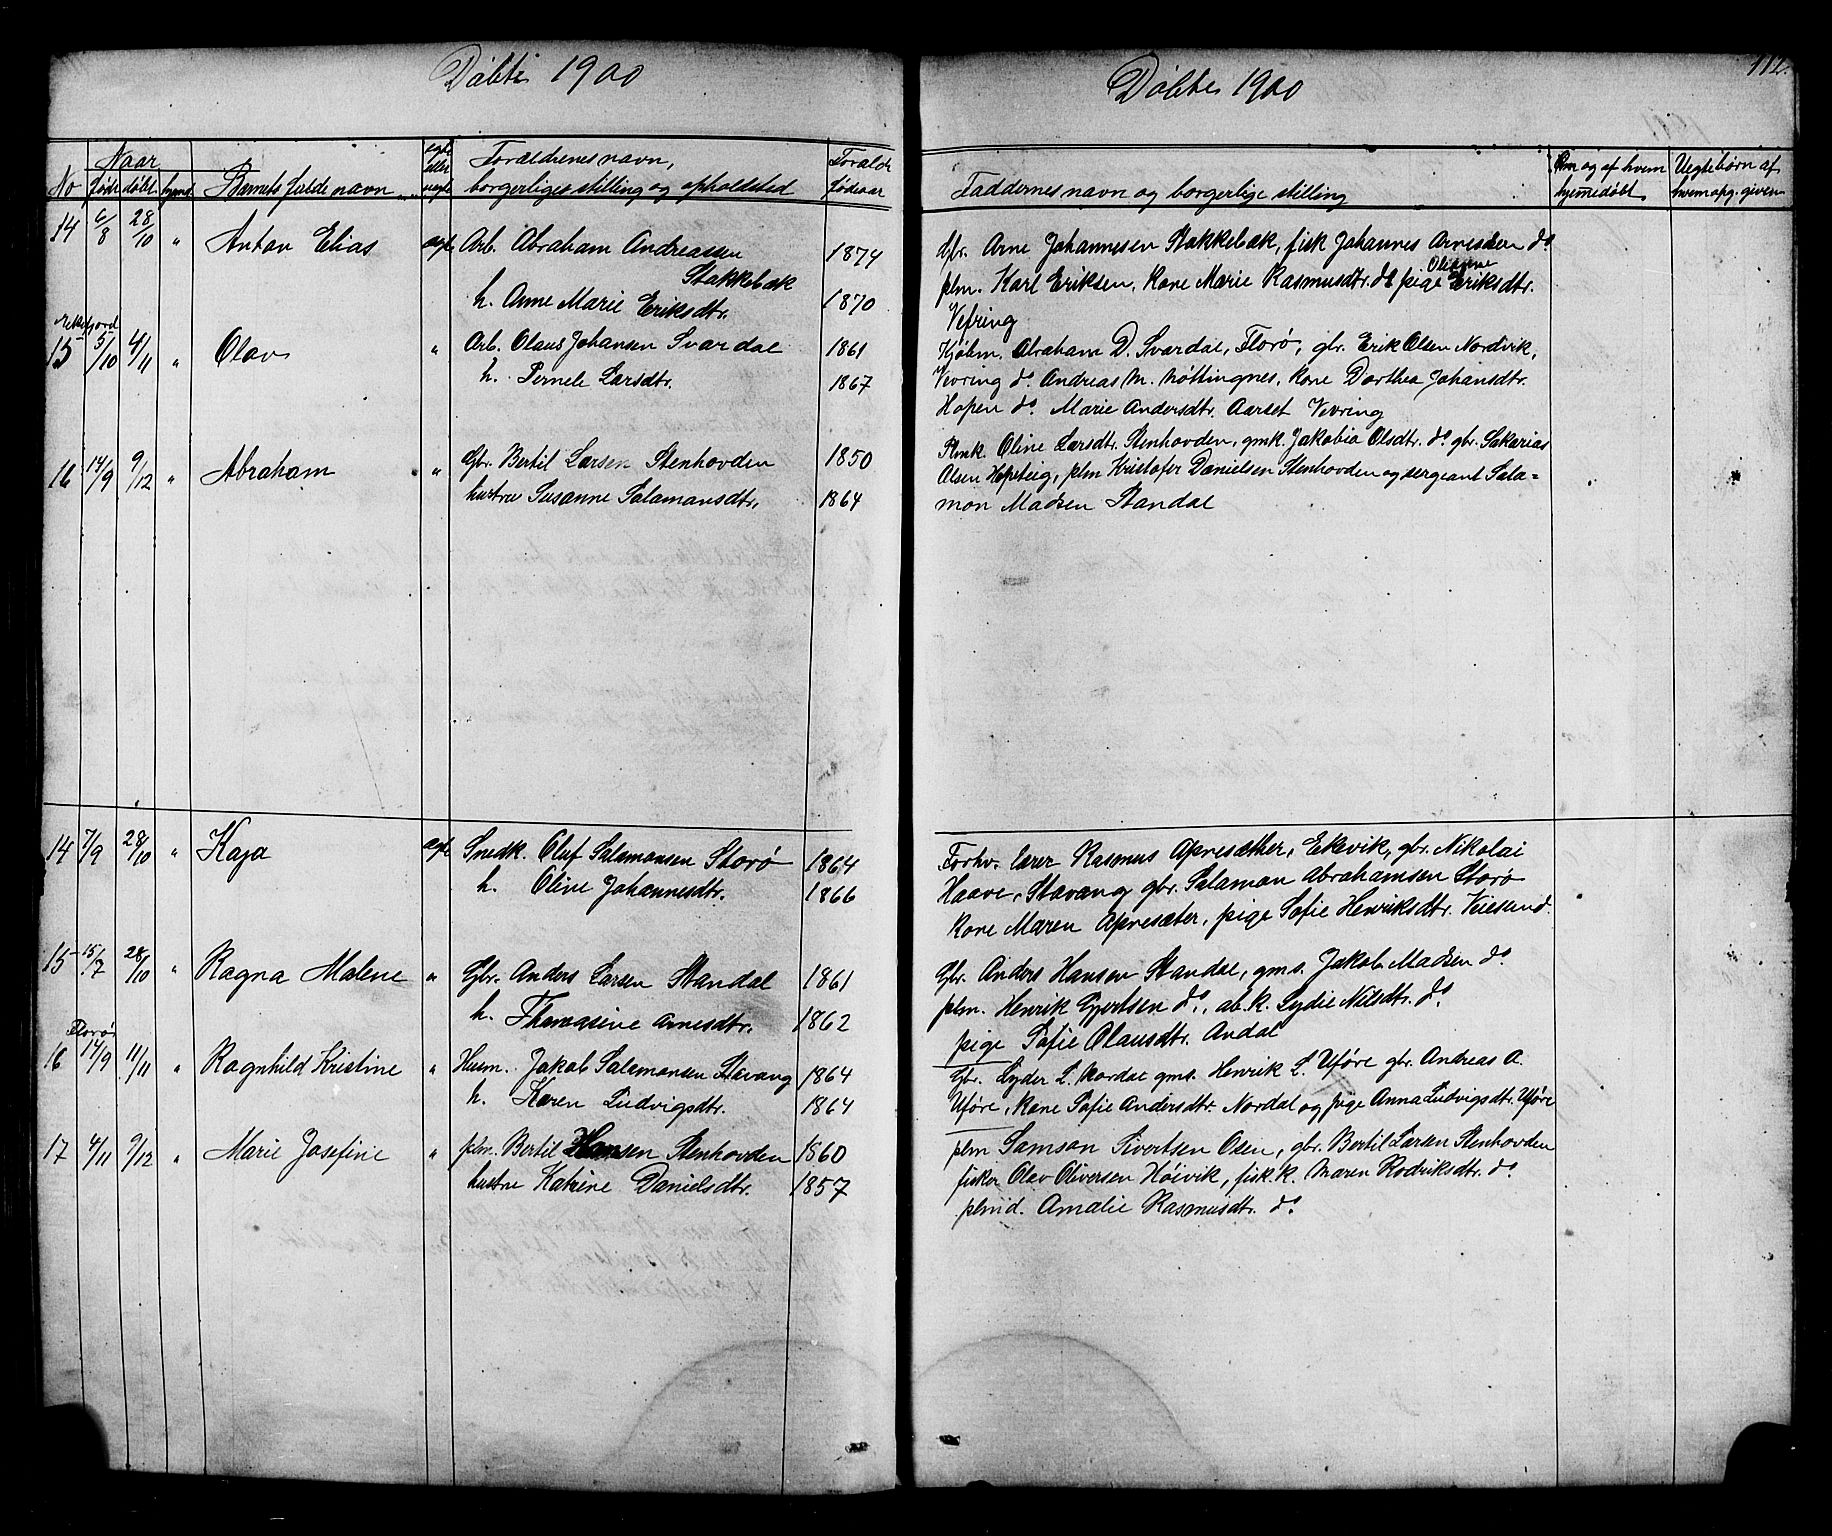 Døbte 1900
Døbte 1900
112.
No Naar født døbt hjemd. Barnets fulde navn ægte eller uægte Forældrenes navn, borgerlige stilling og opholdsted Forældr fødeaar
Faddernes navn og borgerlige stilling Om og af hvem hjemmedøbt Uegte børn af hvem opg. given
14 6/8 28/10 " Anton Elias ægt. Arb. Abraham Andreassen 1874
Stakkebæk
h. Anne Marie Eriksdtr. 1870
Gbr. Arne Johannesen Stakkebæk, fisk Johannes Arnesen do
plm. Karl Eriksen, kone Marie Rasmusdtr. do pige Eriksdtr.
Vefring
15 5/10 4/11 " Olav " Arb. Olaus Johansen Svardal 1861
h. Pernele Larsdtr. 1867
Kjøbm. Abraham D. Svardal, Florø, gbr. Erik Olsen Nordvik,
Vevring do. Andreas M. Nøttingnes, kone Dorthea Johansdtr.
Hopen do. Marie Andersdtr. Aarset Vevring
16 14/9 9/12 " Abraham " Gbr. Bertil Larsen Stenhovden 1850
hustru Susanne Salamonsdtr. 1864
Oline Larsdtr. Stenhovden, gmk. Jakobia Olsdtr. do gbr. Sakarias
Olsen Hopsteig, plm Kristofer Danielsen Stenhovden og sergeant Sala=
mon Madsen Standal
14 7/9 28/10 " Kaja ægt. Snedk. Oluf Salamonsen Storø 1864
h. Oline Johannesdtr. 1866
Forhv. lærer Rasmus Apresæther, Ekevik, gbr. Nikolai
Haave, Stavang gbr. Salamon Abrahamsen Storø
kone Maren Apresæter, pige Sofie Henriksdtr. Veiesund.
15 15/7 28/10 " Ragna Malene " Gbr. Anders Larsen Standal 1861
h. Thomasine Arnesdtr. 1862
Gbr. Anders Hansen Standal, gms. Jakob Madsen do
plm. Henrik Gjertsen do., ab. k. Lydie Nilsdtr. do.
pige Sofie Olausdtr. Andal
Florø
16 14/9 11/11 " Ragnhild Kristine " Husm. Jakob Salamonsen Stavang 1864
h. Karen Ludvigsdtr. 1864
Gbr. Lyder L. Nordal gms. Henrik L. Uføre gbr. Andreas A.
Uføre, kone Sofie Andersdtr. Nordal og pige Anna Ludvigsdtr. Uføre
17 4/11 9/12 " Marie Josefine " plm. Bertil Hansen Stenhovden 1860
hustru Katrine Danielsdtr. 1857
plm Samson Sivertsen Osen, gbr. Bertil Larsen Stenhovden
fisker Olav Oliversen Høivik, fisk. k. Maren Rodriksdtr. do
plmd. Amalie Rasmusdtr. do